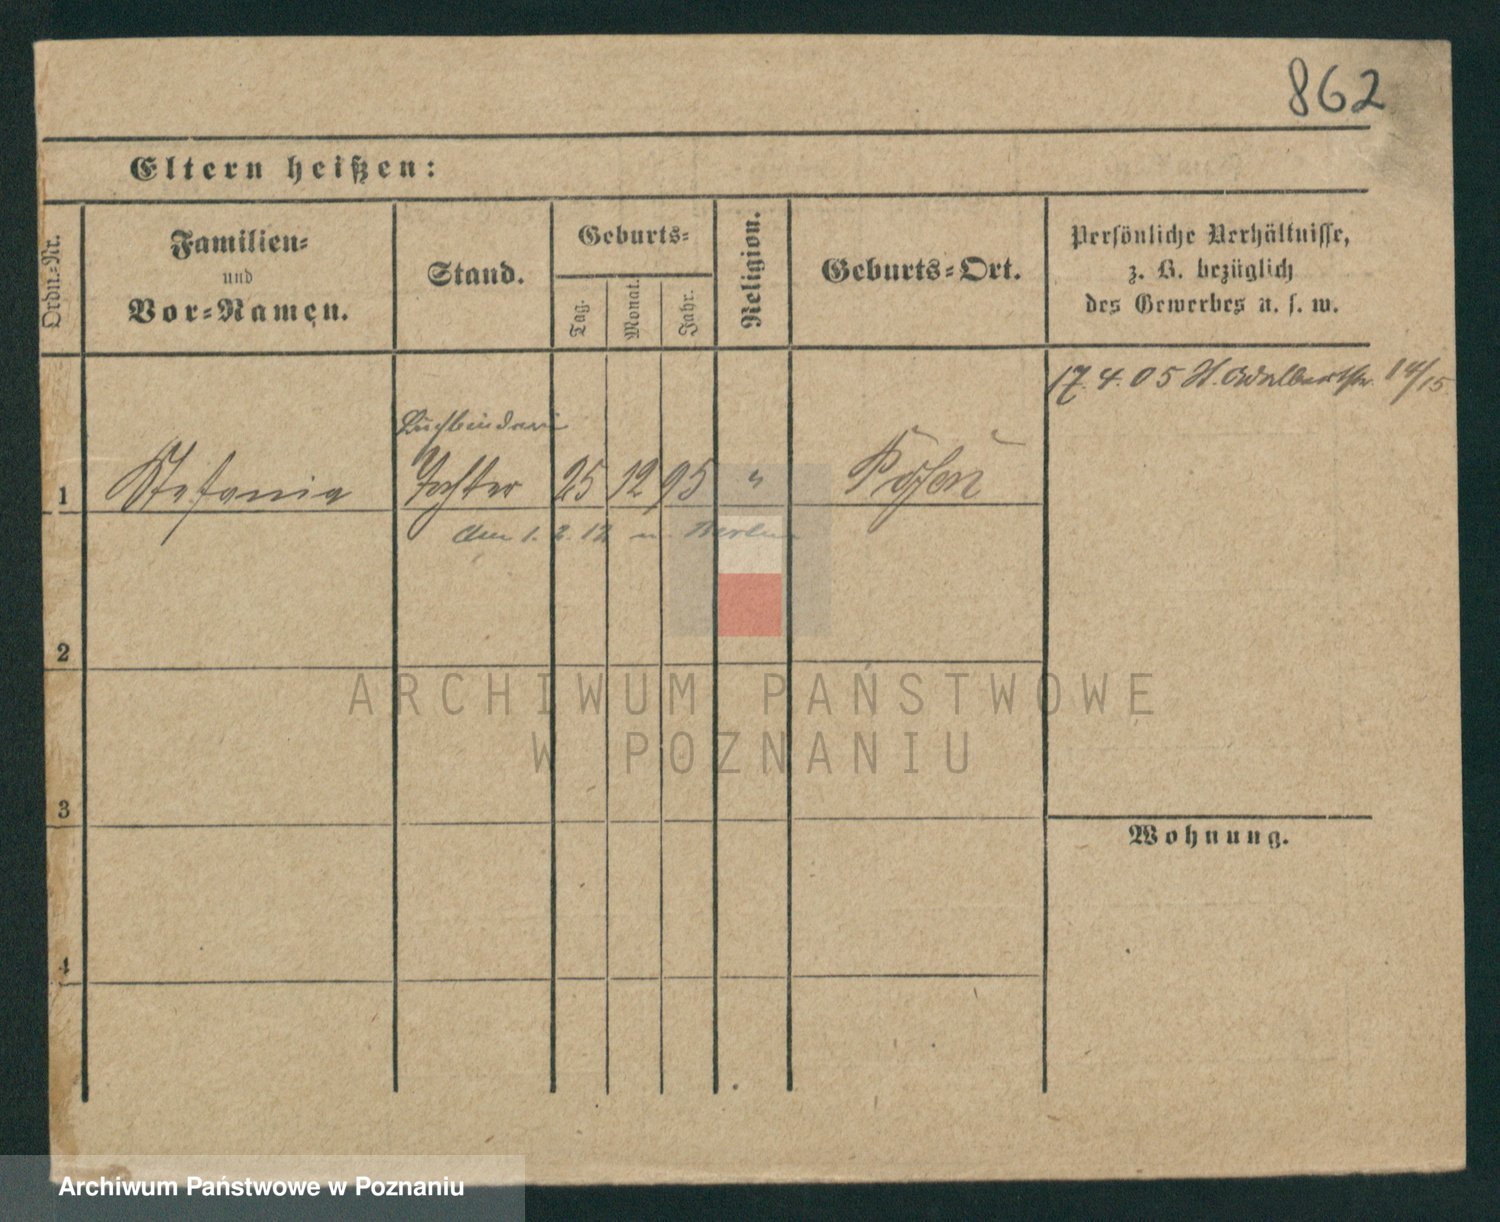 862
Eltern heißen:
Ordn.-Nr.
Familien-
und
Vor-Namen.
Stand.
Geburts-
Tag.
Monat.
Jahr.
Religion.
Geburts-Ort.
Persönliche Verhältnisse,
z. B. bezüglich
des Gewerbes u. s. w.
17. 4. 05 St. Adalbertstr. 14/15
Buchbinderin
1 Stefania Tochter 25 12 95 " Posen
den 1. 2. 12 n. Berlin
2
ARCHIWUM PAŃSTWOWE
W POZNANIU
3
Wohnung.
4
Archiwum Państwowe w Poznaniu